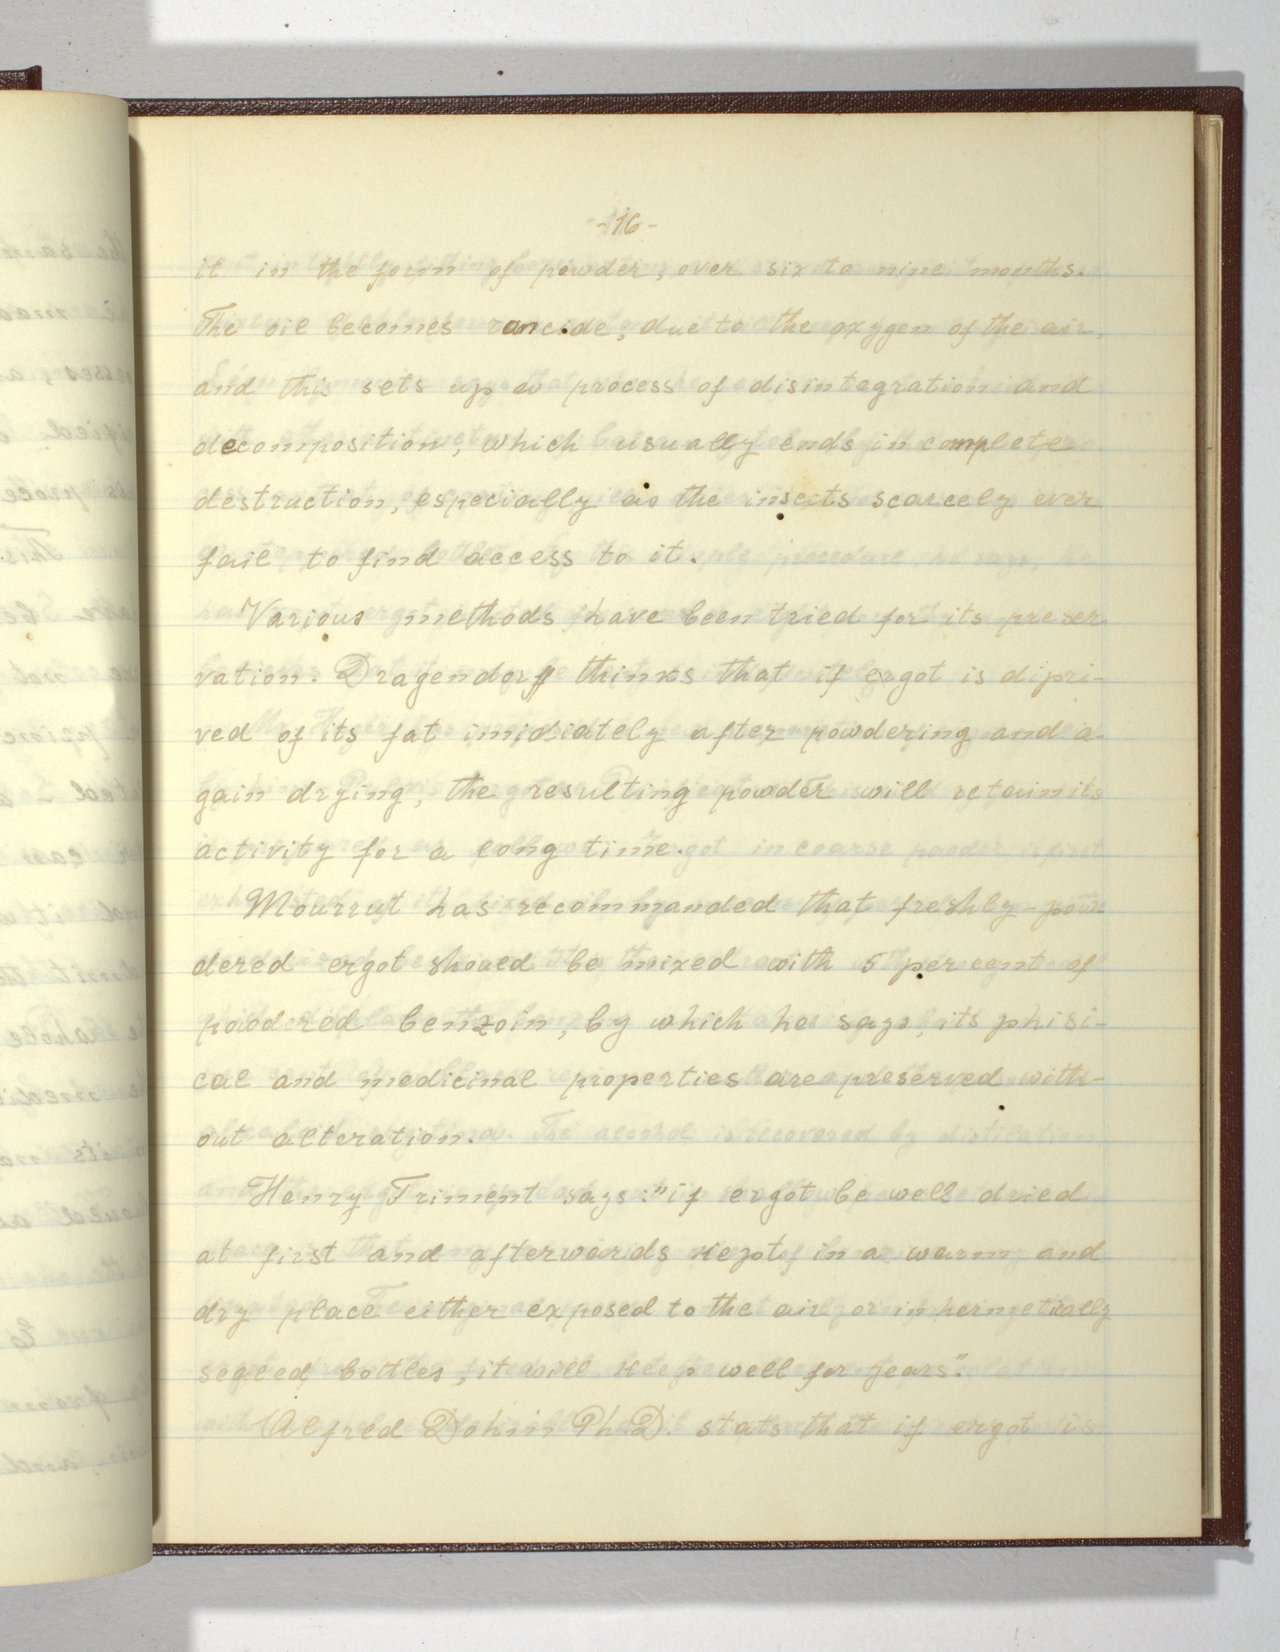 -16-
it in the form of powder, over six to nine months.
The oil becomes rancide, due to the oxygen of the air,
and this sets up a process of disintegration and
decomposition, which usually ends in complete
destruction, especially as the insects scarcely ever
fail to find access to it.
Various methods have been tried for its preser-
vation. Dragendorff thinks that if ergot is dipri-
ved of its fat imidiately after powdering and a-
gain drying, the resulting powder will retain its
activity for a long time.
Mourrut has recommanded that freshly-pow-
dered ergot should be mixed with 5 per cent of
powdered benzoin, by which he says, its phisi-
cal and medicinal properties are preserved with-
out alteration.
Henry Triment says: "if ergot be well dried
at first and afterwards kept in a warm and
dry place either exposed to the air or in hermetically
sealed bottles, it will keep well for years".
Alfred Dohm Ph.D. stats that if ergot is